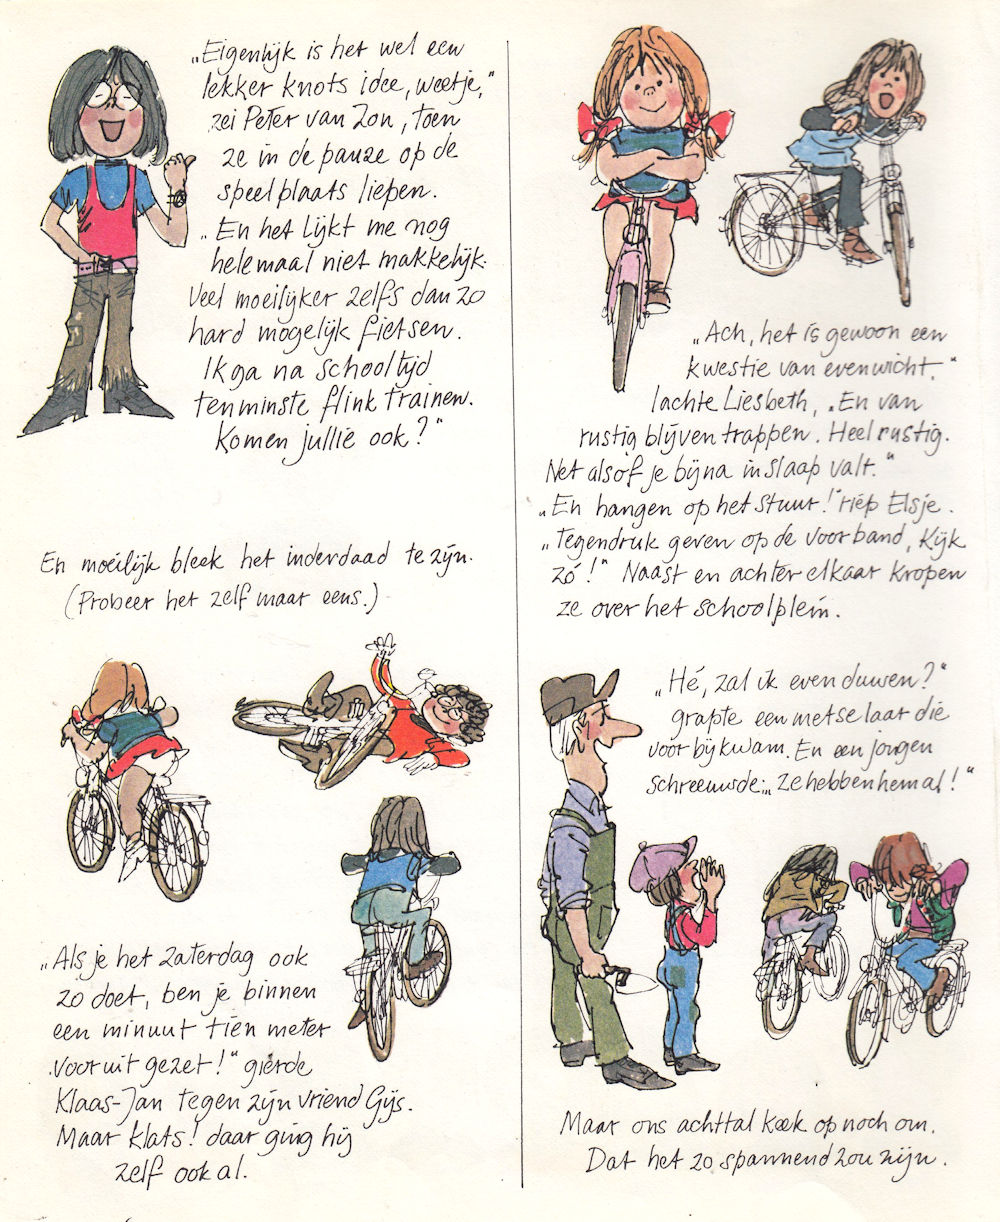 „Eigenlijk is het wel een
lekker knots idee, weetje,"
zei Peter van Zon, toen
ze in de pauze op de
speelplaats liepen.
„En het lijkt me nog
helemaal niet makkelijk.
Veel moeilijker zelfs dan zo
hard mogelijk fietsen.
Ik ga na schooltijd
tenminste flink trainen.
Komen jullie ook?"
En moeilijk bleek het inderdaad te zijn.
(Probeer het zelf maar eens.)
„Als je het zaterdag ook
zo doet, ben je binnen
een minuut tien meter
vooruit gezet!" gierde
Klaas-Jan tegen zijn vriend Gijs.
Maar klats! daar ging hij
zelf ook al.
„Ach, het is gewoon een
kwestie van evenwicht."
lachte Liesbeth, „En van
rustig blijven trappen. Heel rustig.
Net alsof je bijna in slaap valt."
„En hangen op het stuur!" riep Elsje.
„Tegendruk geven op de voorband, Kijk
zó!" Naast en achter elkaar kropen
ze over het schoolplein.
„Hé, zal ik even duwen?"
grapte een metselaar die
voorbijkwam. En een jongen
schreeuwde: „Ze hebben hem al!"
Maar ons achttal keek op noch om.
Dat het zo spannend zou zijn.